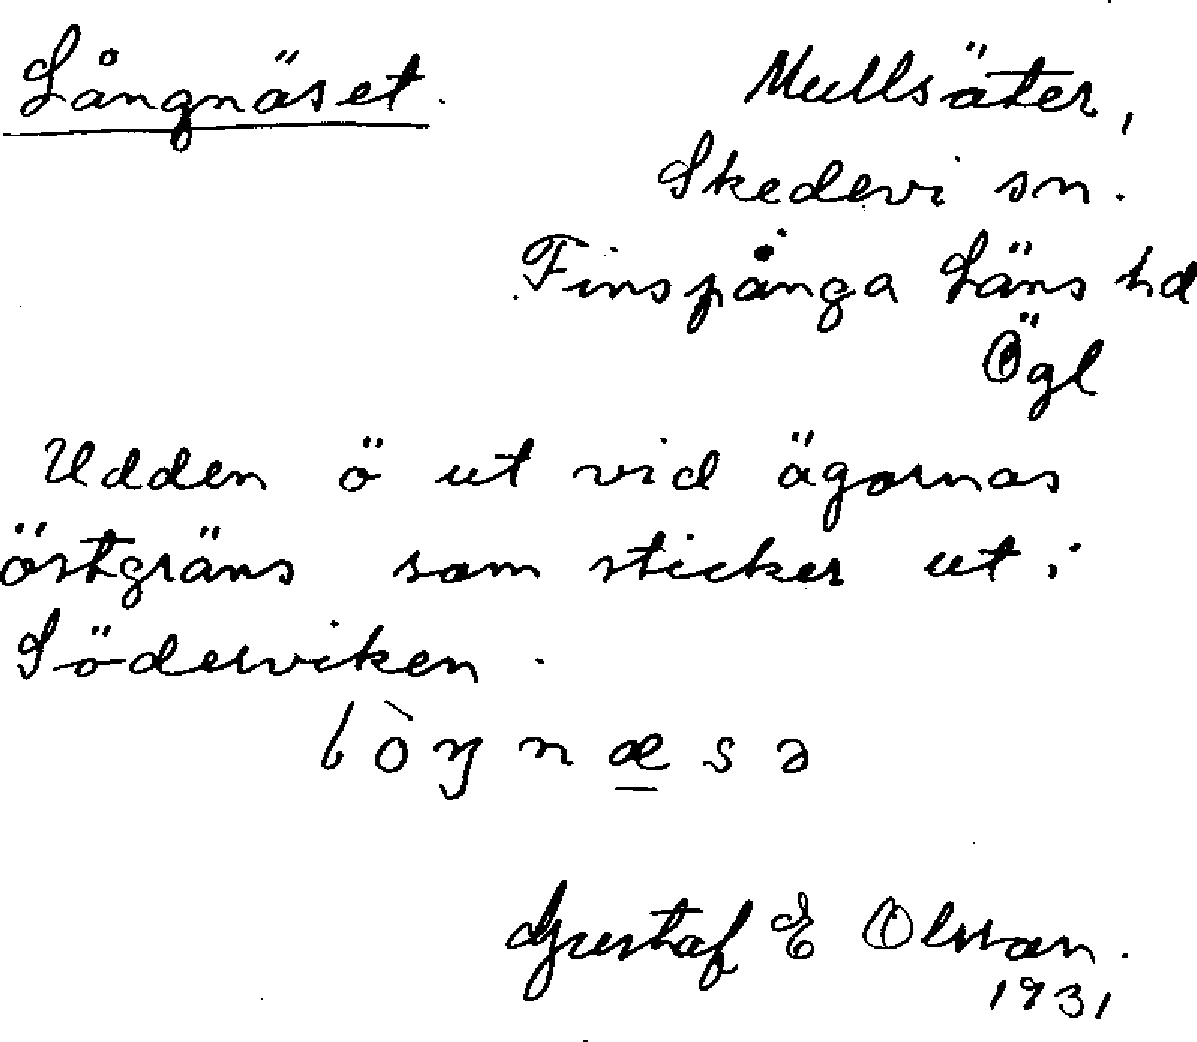 Långnäset.
Mullsäter,
Skedevi sn.
Finspånga Läns hd
Ögl
Udden ö ut vid ägornas
östgräns som sticker ut i
Söderviken.
lòŋnæsə
Gustaf E Olsson.
1931